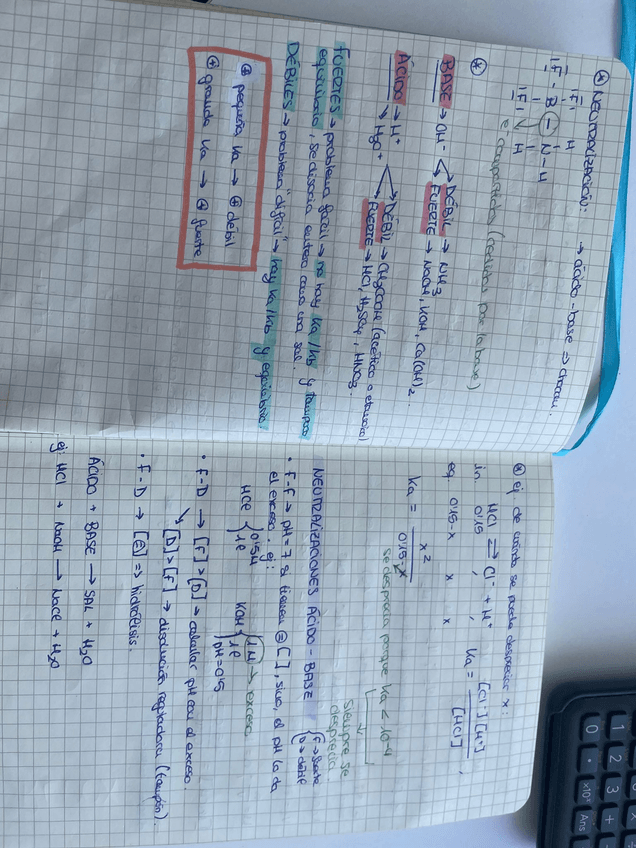 * NEUTRALIZACIÓN: → ácido-base ⇒ chocan.
|F| H
|F - B - N - H
|F| H
e⁻ compartidos (cedidos por la base)
*
BASE → OH⁻ DÉBIL → NH3
FUERTE → NaOH, KOH, Ca(OH)2.
ÁCIDO → H⁺ DÉBIL → CH3COOH (acético o etanoico)
H3O⁺ FUERTE → HCl, H2SO4, HNO3.
FUERTES → problema fácil → no hay Ka/Kb y tampoco
equilibrio, se disocia entero como una sal.
DÉBILES → problema "difícil" → hay Ka/Kb y equilibrio.
⊕ pequeña Ka → ⊕ débil
⊕ grande Ka → ⊕ fuerte
* ej de cuándo se puede despreciar x:
HCl ⇄ Cl⁻ + H⁺ , Ka = [Cl⁻][H⁺] / [HCl] ,
in. 0'15
eq. 0'15-x x x
Ka = x² / 0'15-x
se desprecia porque Ka < 10⁻⁴
siempre se
desprecia
NEUTRALIZACIONES ÁCIDO-BASE { F → fuerte
D → débil
• F-F → pH = 7 si tienen ⊜ [ ], sino, el pH lo da
el exceso. ej:
HCl { 0'5M KOH { 1M → exceso
1l 1l pH = 0'5
• F-D → [F] > [D] → calcular pH con el exceso.
[D] > [F] → disolución reguladora (tampón).
• F-D → [=] ⇒ hidrólisis.
ÁCIDO + BASE → SAL + H2O
ej: HCl + NaOH → NaCl + H2O
1 2 3
0 • ×10ˣ Ans
+ -